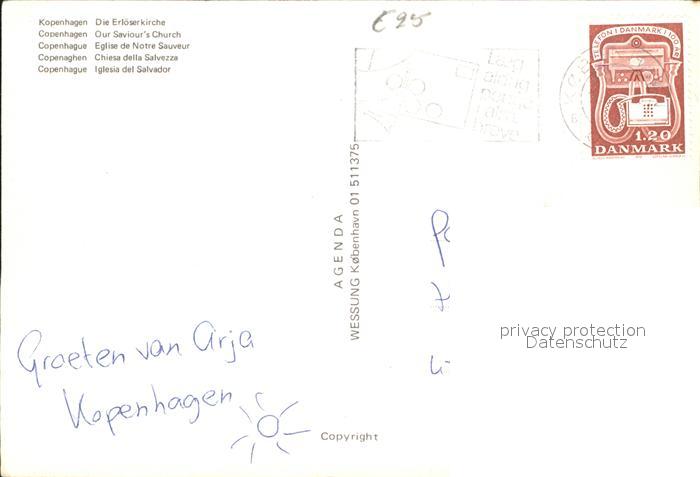 Kopenhagen Die Erlöserkirche
Copenhagen Our Saviour's Church
Copenhague Eglise de Notre Sauveur
Copenaghen Chiesa della Salvezza
Copenhague Iglesia del Salvador
€25
Læg
aldrig
penge
i alm.
breve
TELEFON I DANMARK I 100 ÅR
1.20
DANMARK
AGENDA
WESSUNG København 01 511375
privacy protection
Datenschutz
Groeten van Arja
Kopenhagen
Copyright